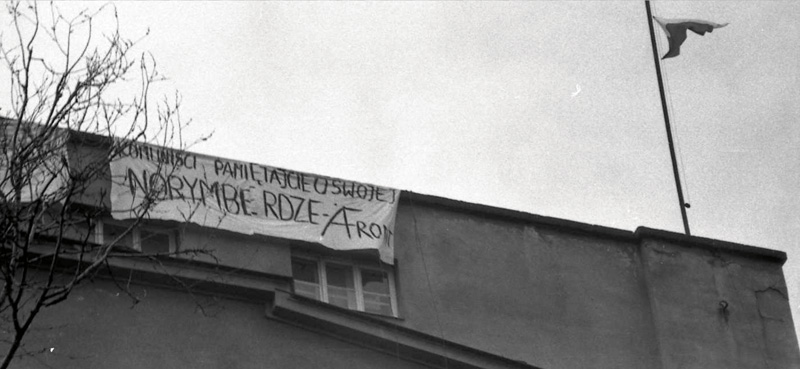 KOMUNIŚCI, PAMIĘTAJCIE O SWOJEJ
NORYMBERDZE - AFRON